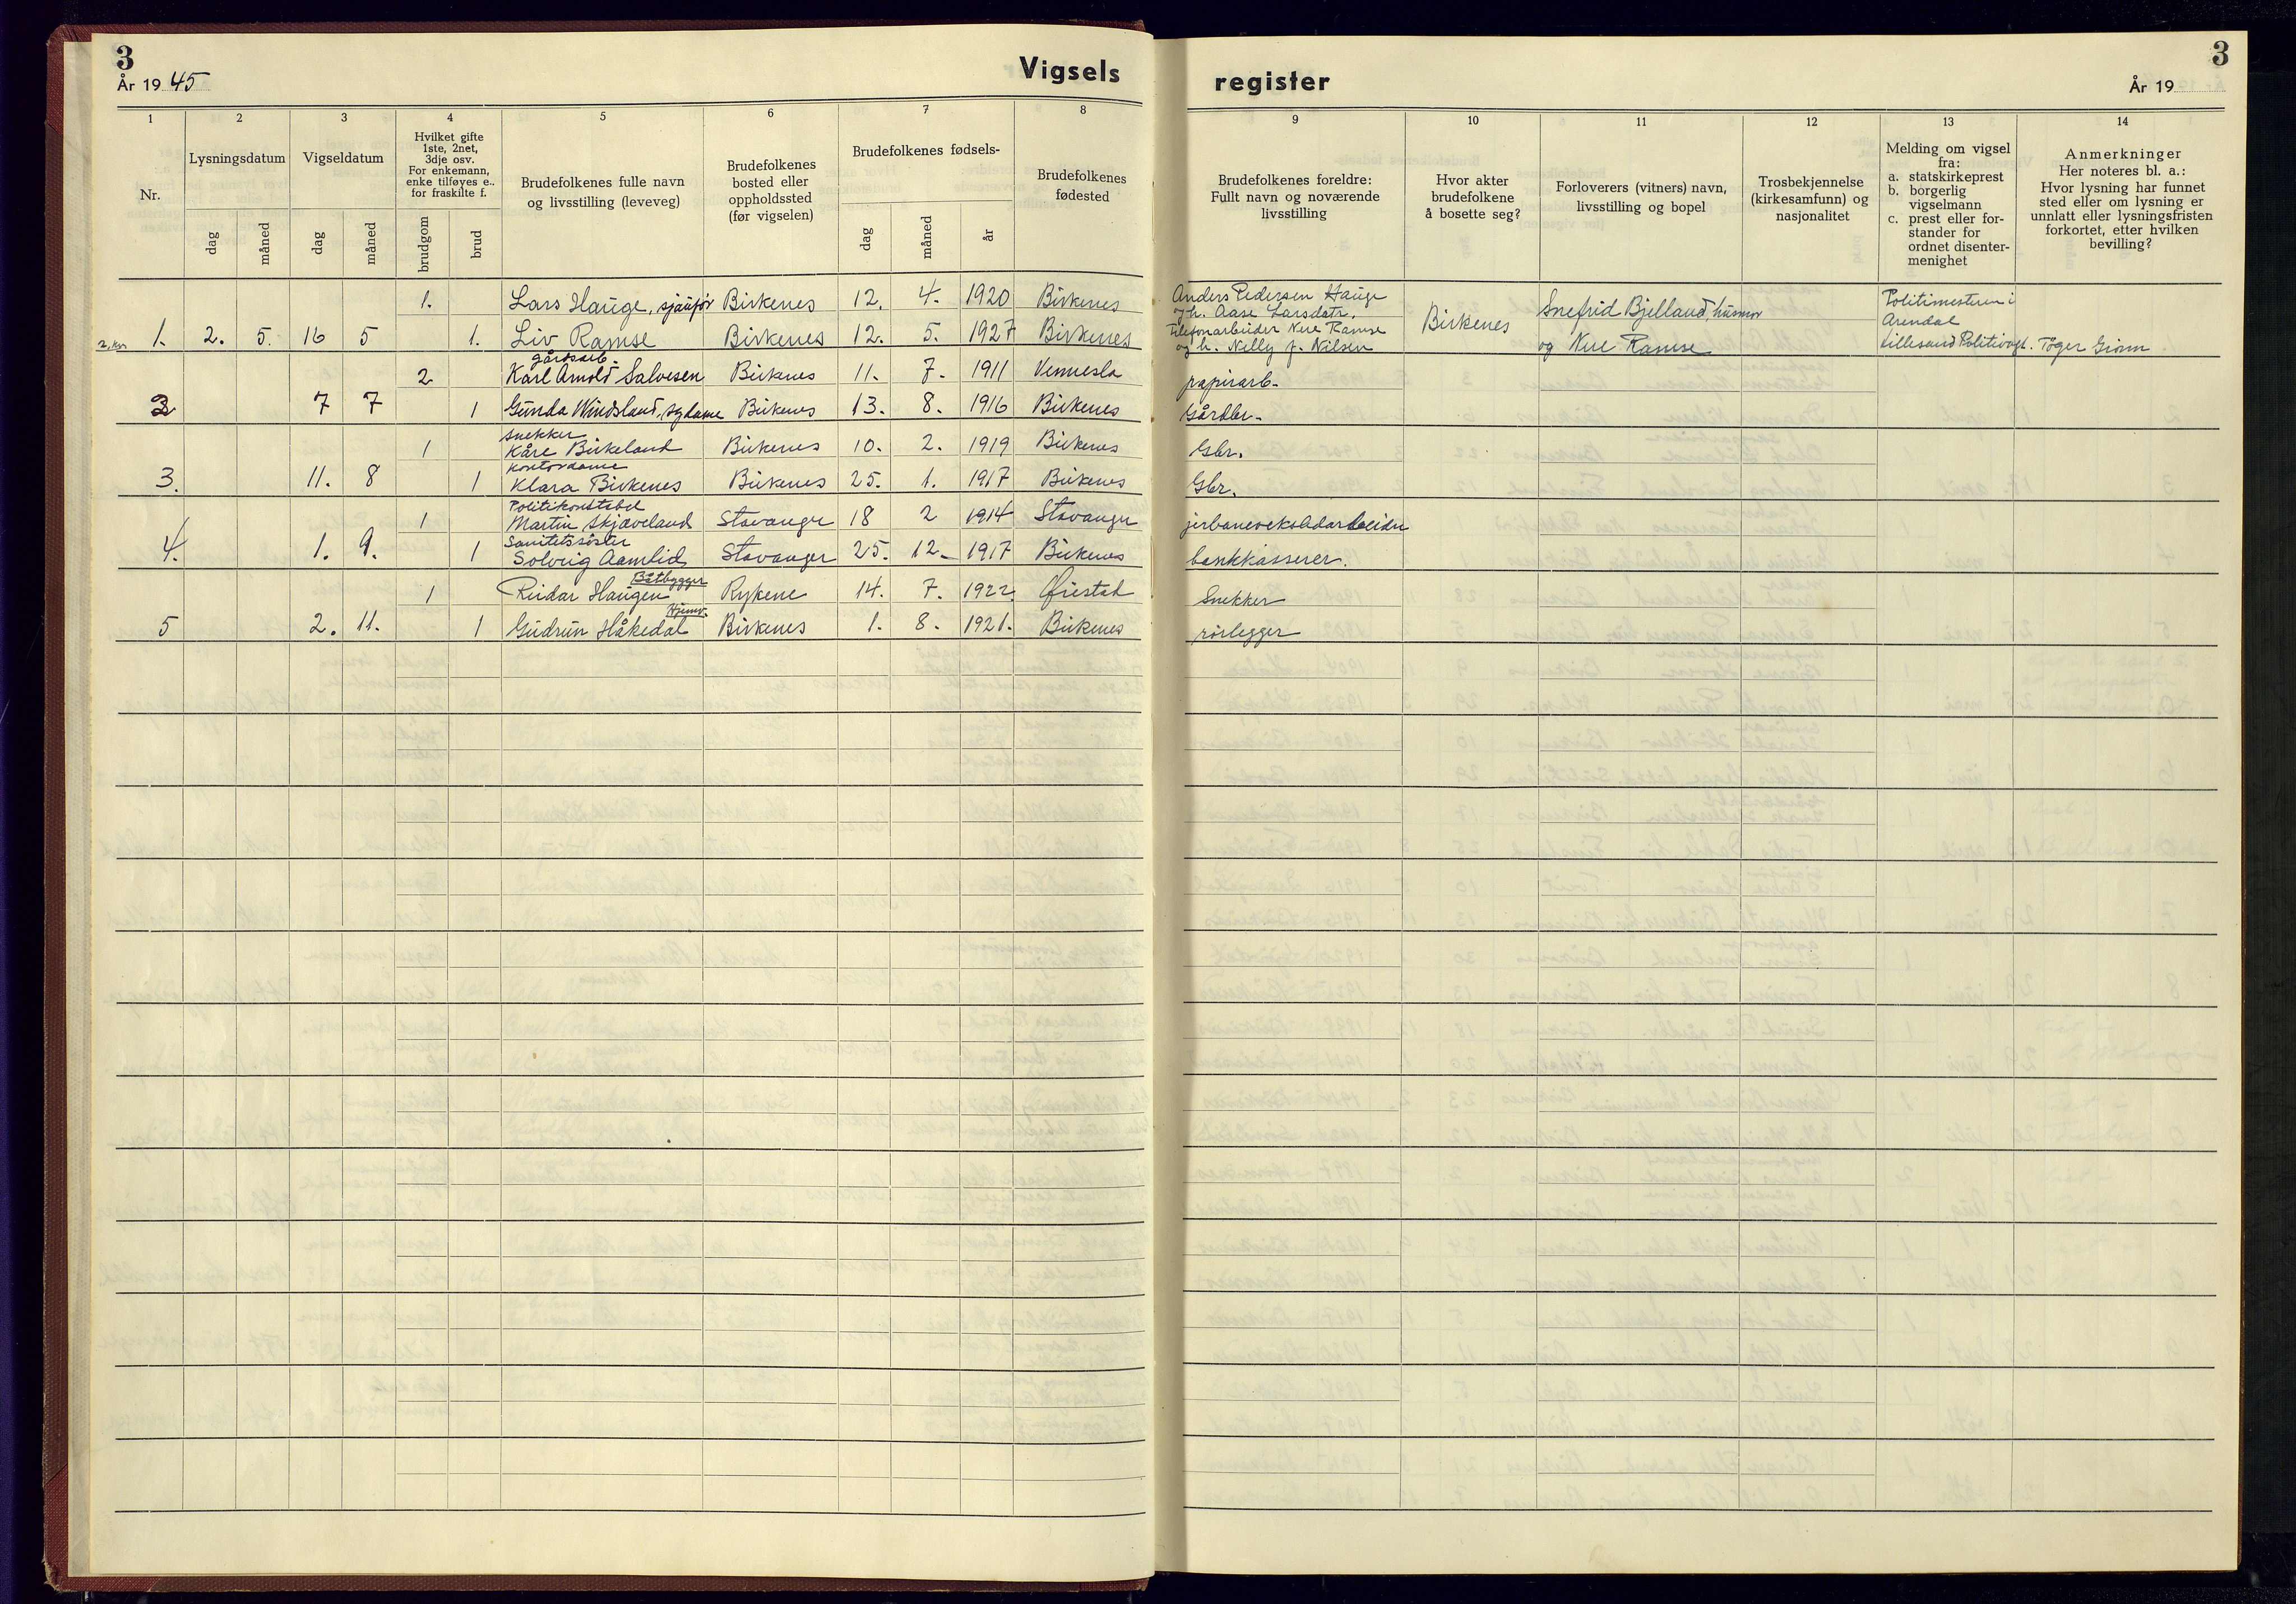 3
År 19 45
Vigsels
register
3
År 19
1
2
3
4
5
6
7
8
9
10
11
12
13
14
Nr.
Lysningsdatum
dag
måned
Vigseldatum
dag
måned
Hvilket gifte
1ste, 2net,
3dje osv.
For enkemann,
enke tilføyes e..
for fraskilte f.
brudgom
brud
Brudefolkenes fulle navn
og livsstilling (leveveg)
Brudefolkenes
bosted eller
oppholdssted
(før vigselen)
Brudefolkenes fødsels-
dag
måned
år
Brudefolkenes
fødested
Brudefolkenes foreldre:
Fullt navn og noværende
livsstilling
Hvor akter
brudefolkene
å bosette seg?
Forloverers (vitners) navn,
livsstilling og bopel
Trosbekjennelse
(kirkesamfunn) og
nasjonalitet
Melding om vigsel
fra:
a. statskirkeprest
b. borgerlig
vigselmann
c. prest eller for-
stander for
ordnet disenter-
menighet
Anmerkninger
Her noteres bl. a.:
Hvor lysning har funnet
sted eller om lysning er
unnlatt eller lysningsfristen
forkortet, etter hvilken
bevilling?
1. Lars Hauge, sjåufør Birkenes 12. 4. 1920 Birkenes
Anders Pedersen Hauge
og h. Aase Larsdatr.
1. 2. 5. 16 5 1. Liv Ramse Birkenes 12. 5. 1927 Birkenes
Telefonarbeider Nere Ramse
og h. Nelly f. Nilsen
Birkenes
Snefrid Bjelland, husmor
og Nere Ramse
Politimesteren i
Arendal
Lillesand Politivagt. Tåger Grønn
gårdsarb.
2 Karl Arnold Salvesen Birkenes 11. 7. 1911 Vennesla papirarb.
2 7 7 1 Gunda Windsland, sydame Birkenes 13. 8. 1916 Birkenes Gårdbr.
snekker
1 Kåre Birkeland Birkenes 10. 2. 1919 Birkenes Gbr.
kontordame
3. 11. 8 1 Klara Birkenes Birkenes 25. 1. 1917 Birkenes Gbr.
Politikonstabel
1 Martin Skjæveland Stavanger 18 2 1914 Stavanger jerbaneverkstedarbeider
Sanitetssøster
4. 1. 9. 1 Solveig Aamlid Stavanger 25. 12. 1917 Birkenes bankkasserer.
Båtbygger
1 Reidar Haugen Rykene 14. 7. 1922 Øiestad Snekker
Hjemv.
5 2. 11. 1 Gudrun Håkedal Birkenes 1. 8. 1921. Birkenes rørlegger